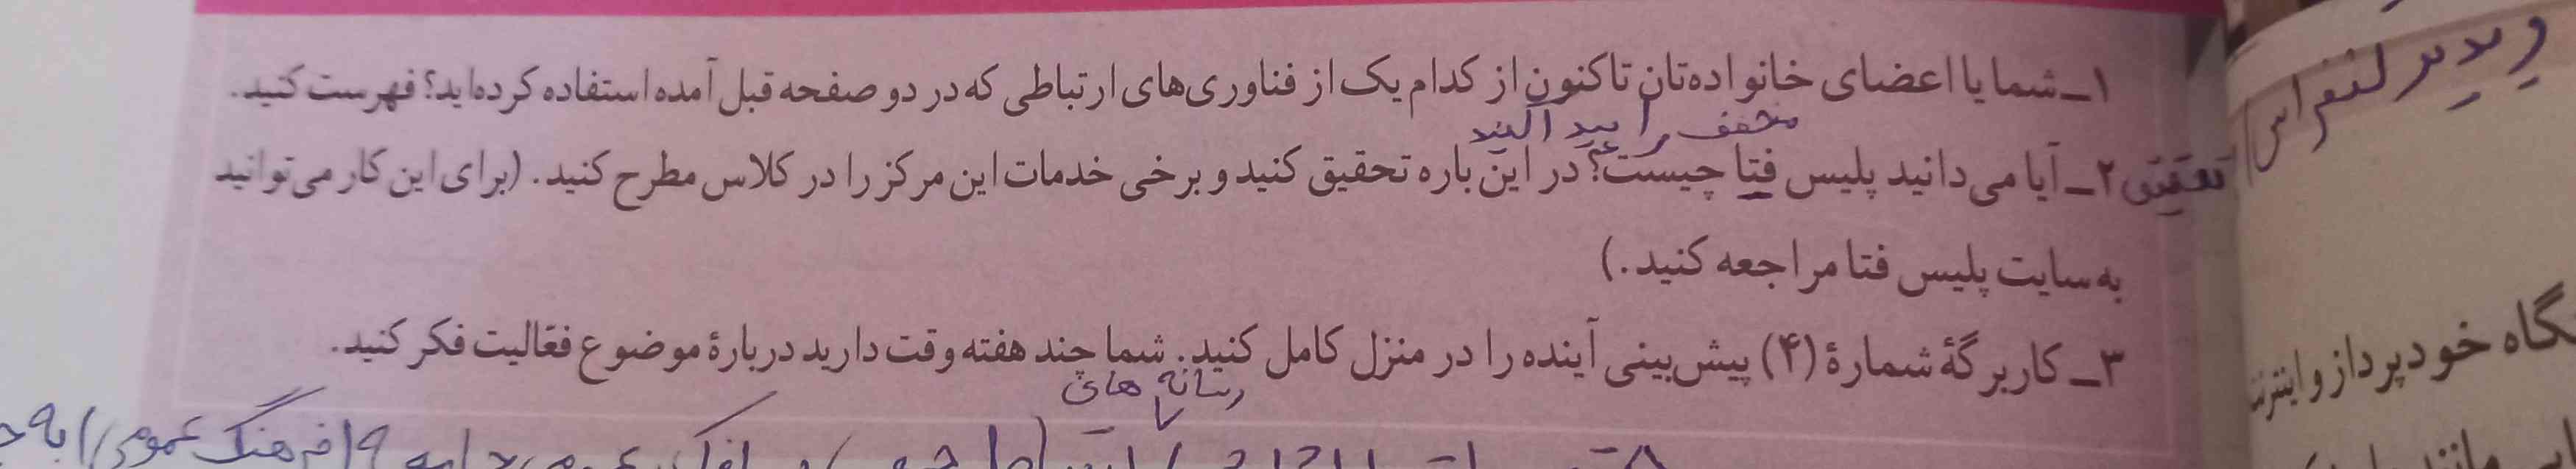 ۱ــ شما یا اعضای خانواده‌تان تاکنون از کدام یک از فناوری‌های ارتباطی که در دو صفحه قبل آمده استفاده کرده‌اید؟ فهرست کنید.
مخفف را پیدا کنید
تحقیق ۲ــ آیا می‌دانید پلیس فتا چیست؟ در این باره تحقیق کنید و برخی خدمات این مرکز را در کلاس مطرح کنید. (برای این کار می‌توانید
به سایت پلیس فتا مراجعه کنید.)
۳ــ کاربرگهٔ شمارهٔ (۴) پیش‌بینی آینده را در منزل کامل کنید. شما چند هفته وقت دارید دربارهٔ موضوع فعّالیت فکر کنید.
رسانه های
(فرهنگ عمومی) به
کنفراس
گاه خودپرداز و اینترنت
مانند